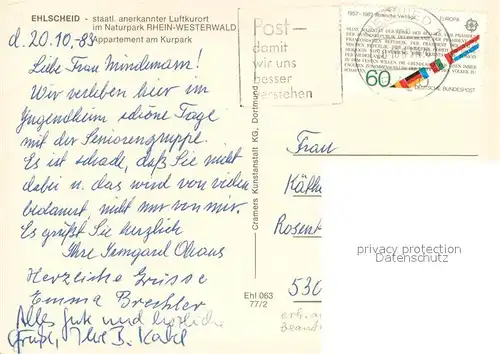 EHLSCHEID - staatl. anerkannter Luftkurort
im Naturpark RHEIN-WESTERWALD
Appartement am Kurpark
d. 20.10.-83
Liebe Frau Mindemann!
Wir verleben hier im
Jugendheim schöne Tage
mit der Seniorengruppe.
Es ist schade, daß Sie nicht
dabei u. das wird von vielen
bedauert nicht nur von mir.
Es grüßt Sie herzlich
Ihre Irmgard
Herzliche Grüsse
Emma Brechler
Alles Gute und herzliche
Grüße, B.
Cramers Kunstanstalt KG, Dortmund
Ehl 063
77/2
Post-
damit
wir uns
besser
verstehen
1957-1982 Römische Verträge EUROPA
60
DEUTSCHE BUNDESPOST
Frau
Käthe
Rosent
530
privacy protection
Datenschutz